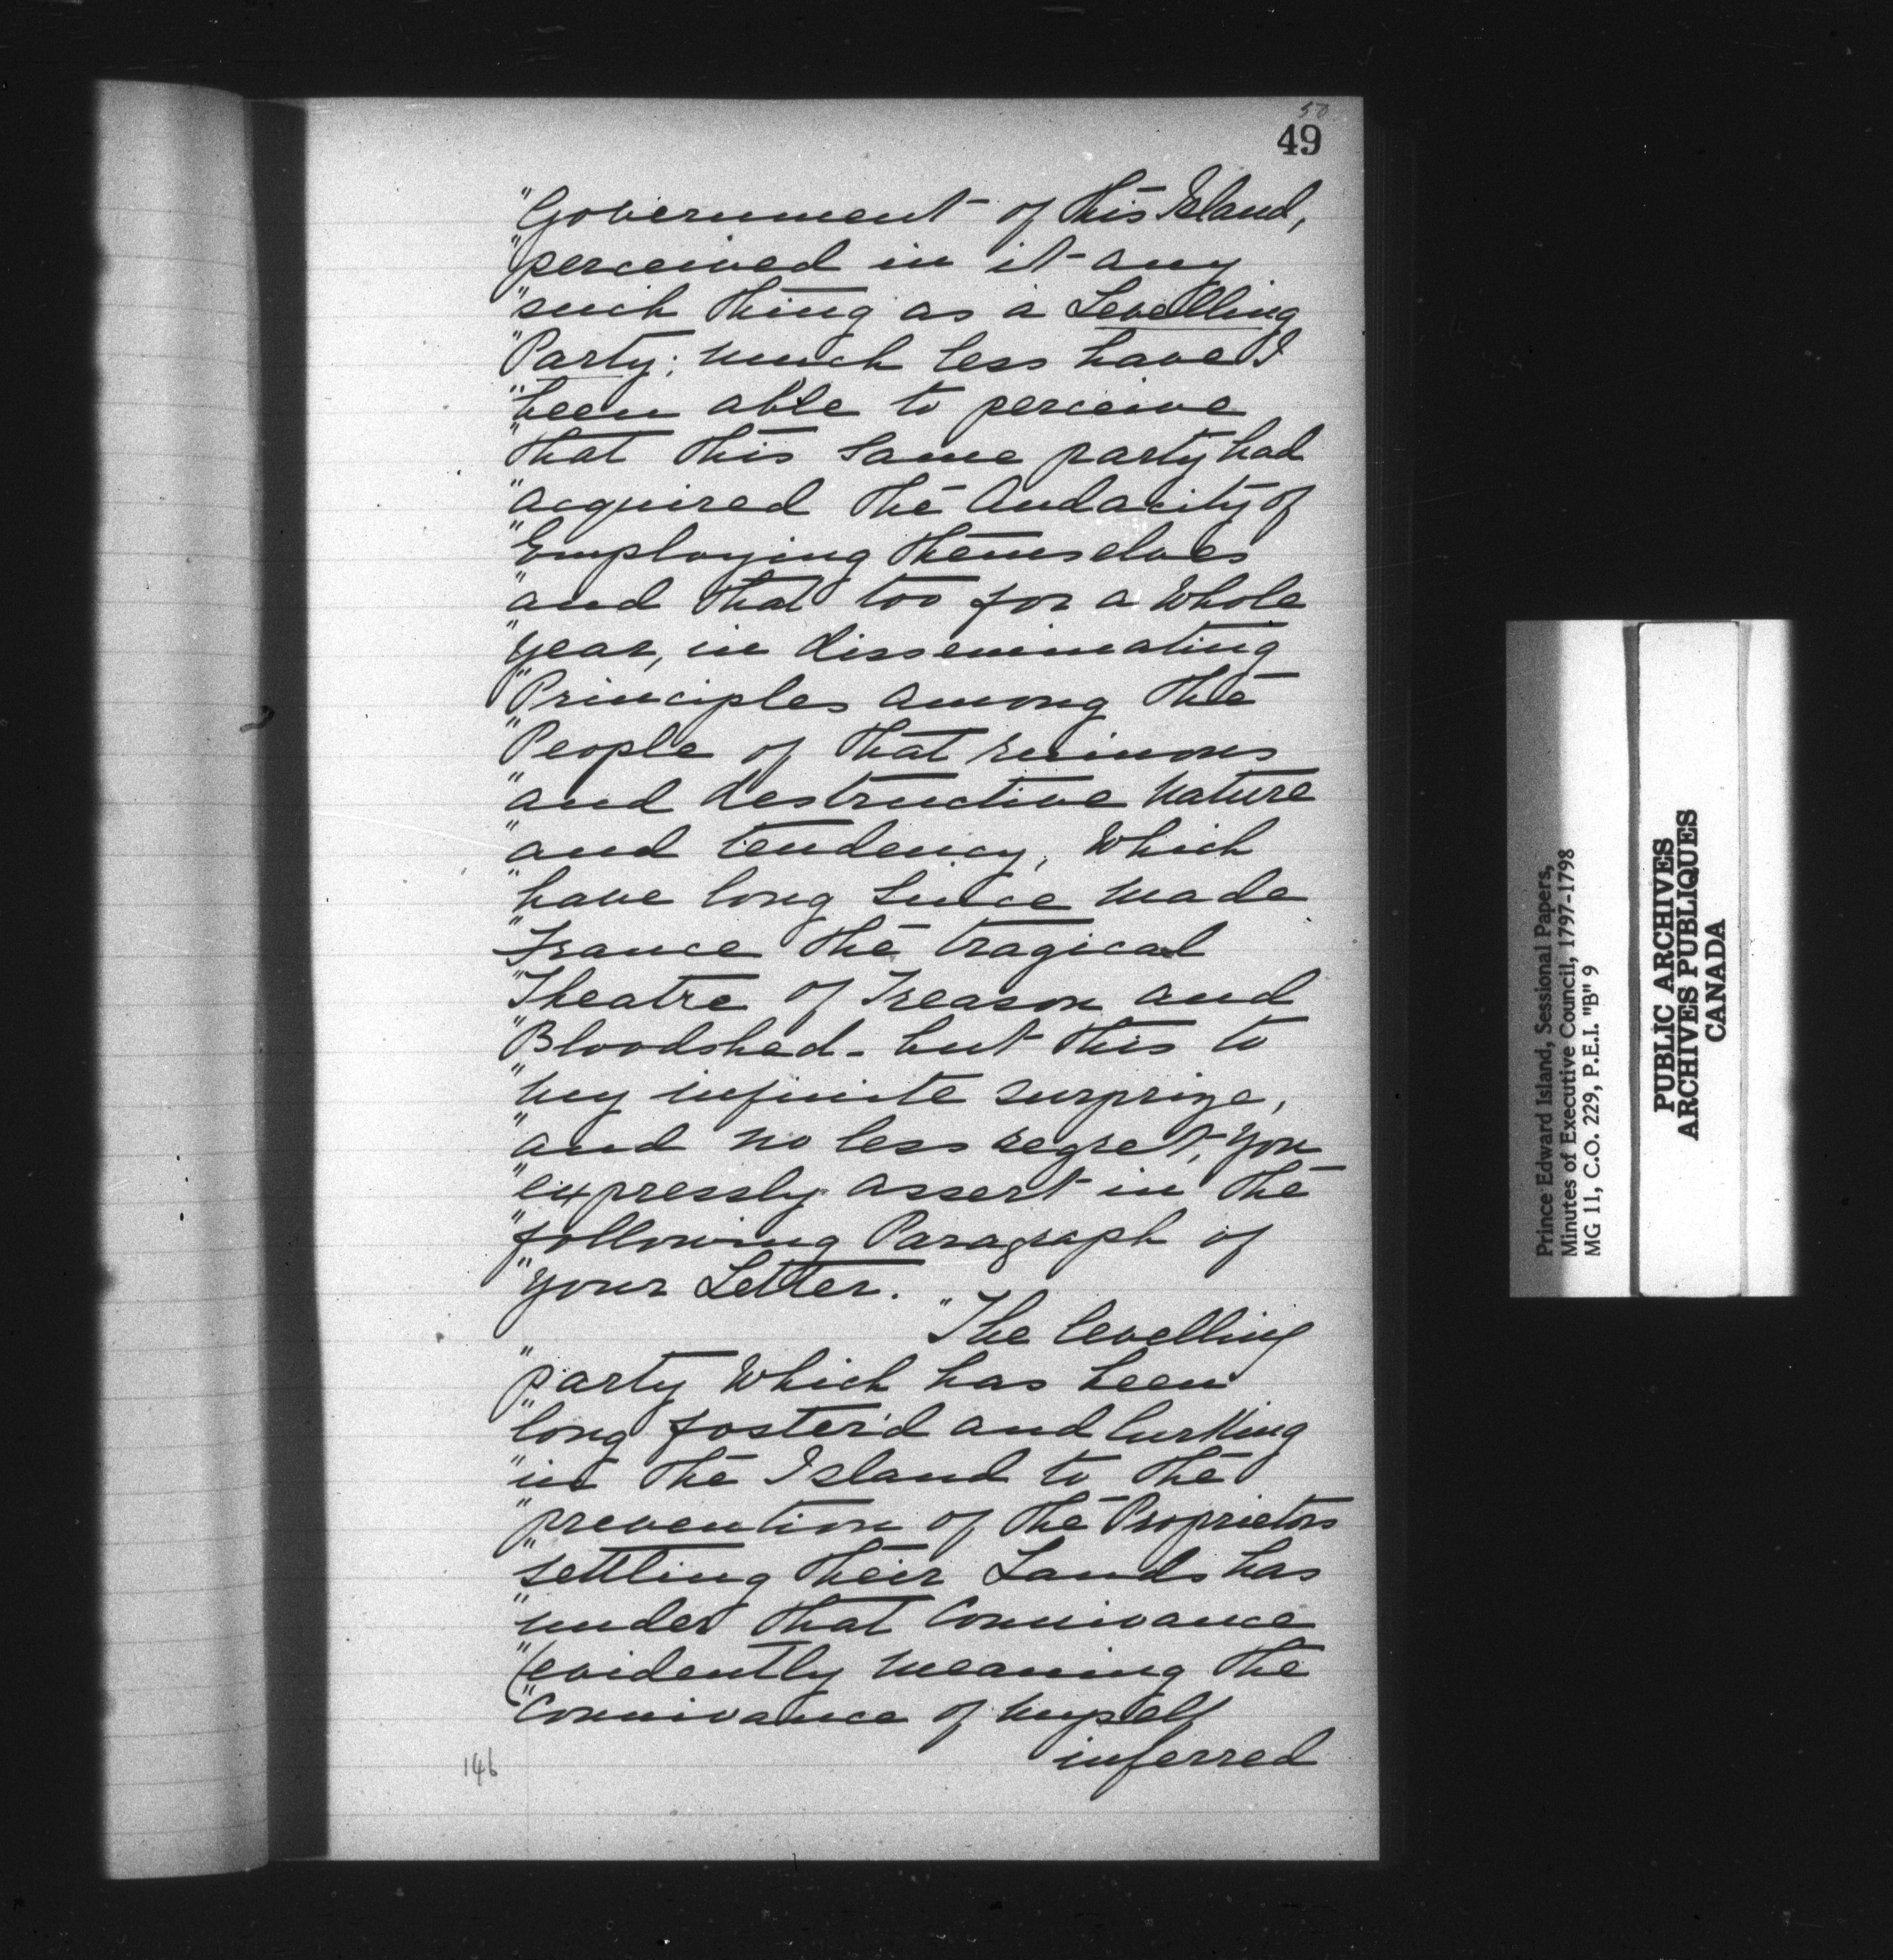 50
49
"Government of this Island,
"perceived in it any
"such thing as a Levelling
"Party; much less have I
"been able to perceive
"that this same party had
"acquired the Audacity of
"Employing themselves
"and that too for a Whole
"year, in disseminating
"Principles among the
"People of that ruinous
"and destructive nature
"and tendency, Which
"have long since made
"France the tragical
"Theatre of Treason and
"Bloodshed - but this to
"my infinite surprize,
"and no less regret, you
"expressly assert in the
"following Paragraph of
"your Letter.
"The levelling
"party Which has been
"long foster'd and lurking
"in the Island to the
"prevention of the Proprietors
"settling their Lands has
"under that Connivance
"(evidently meaning the
"Connivance of myself
inferred
146
Prince Edward Island, Sessional Papers,
Minutes of Executive Council, 1797-1798
MG 11, C.O. 229, P.E.I. "B" 9
PUBLIC ARCHIVES
ARCHIVES PUBLIQUES
CANADA